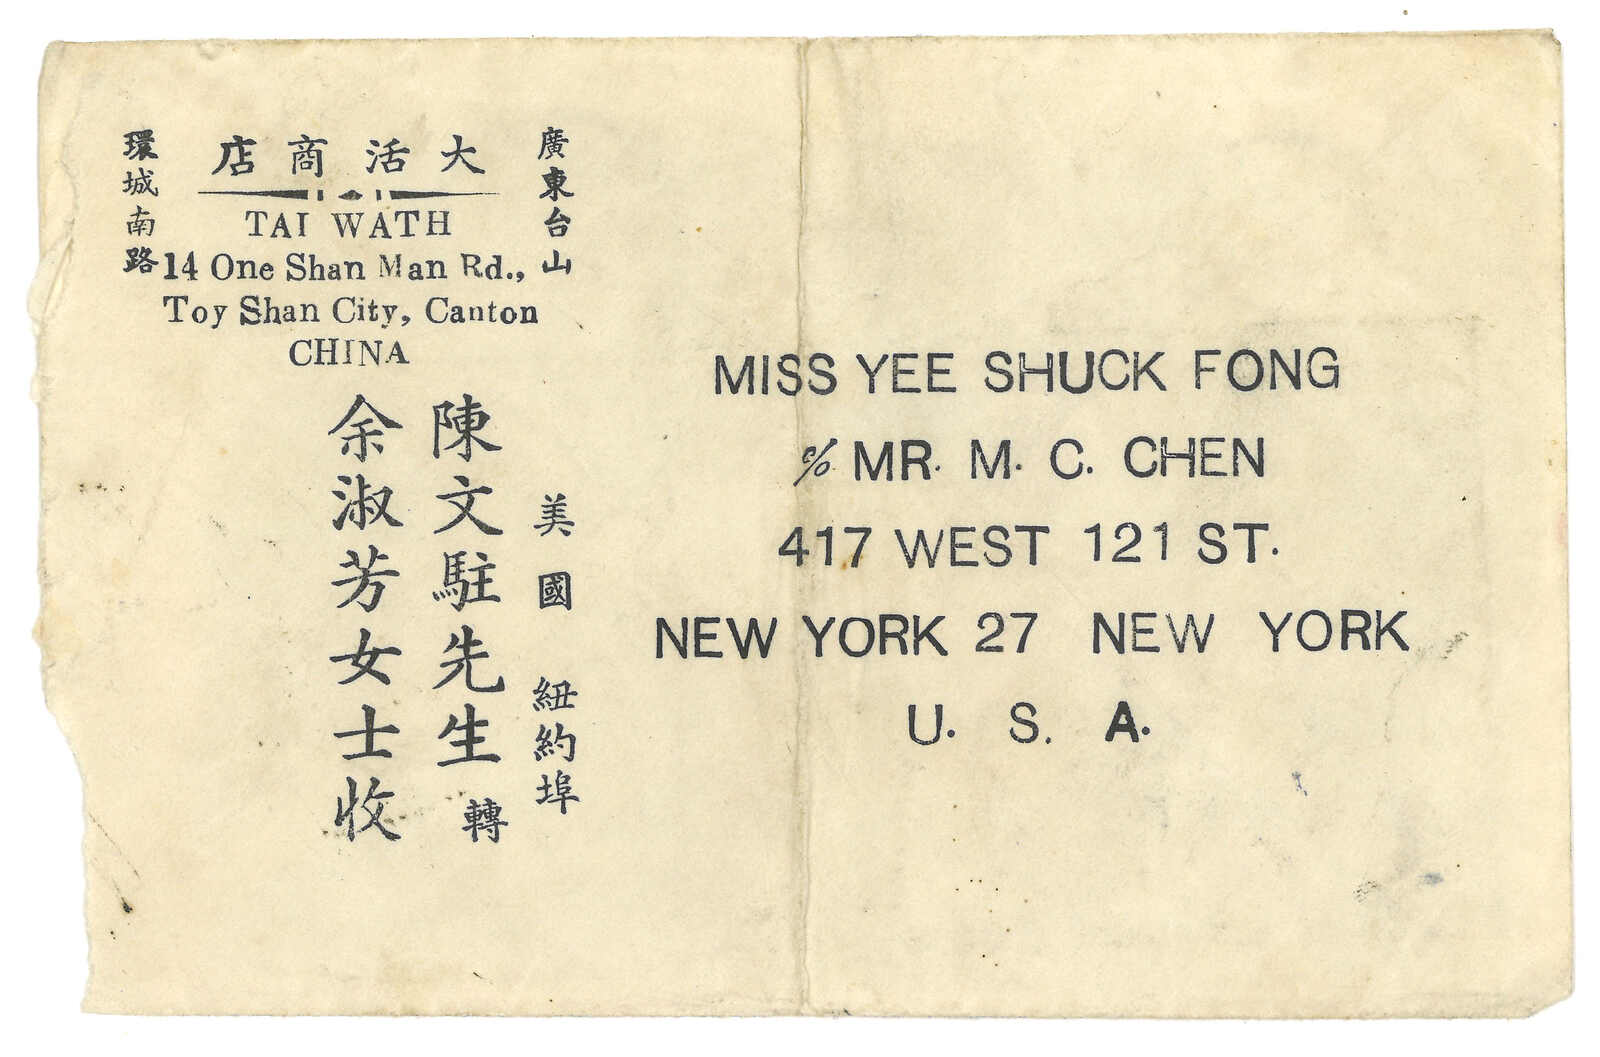 廣東台山
大活商店
環城南路
TAI WATH
14 One Shan Man Rd.,
Toy Shan City, Canton
CHINA
美國 紐約埠
陳文駐先生 轉
余淑芳女士收
MISS YEE SHUCK FONG
c/o MR. M. C. CHEN
417 WEST 121 ST.
NEW YORK 27 NEW YORK
U. S. A.